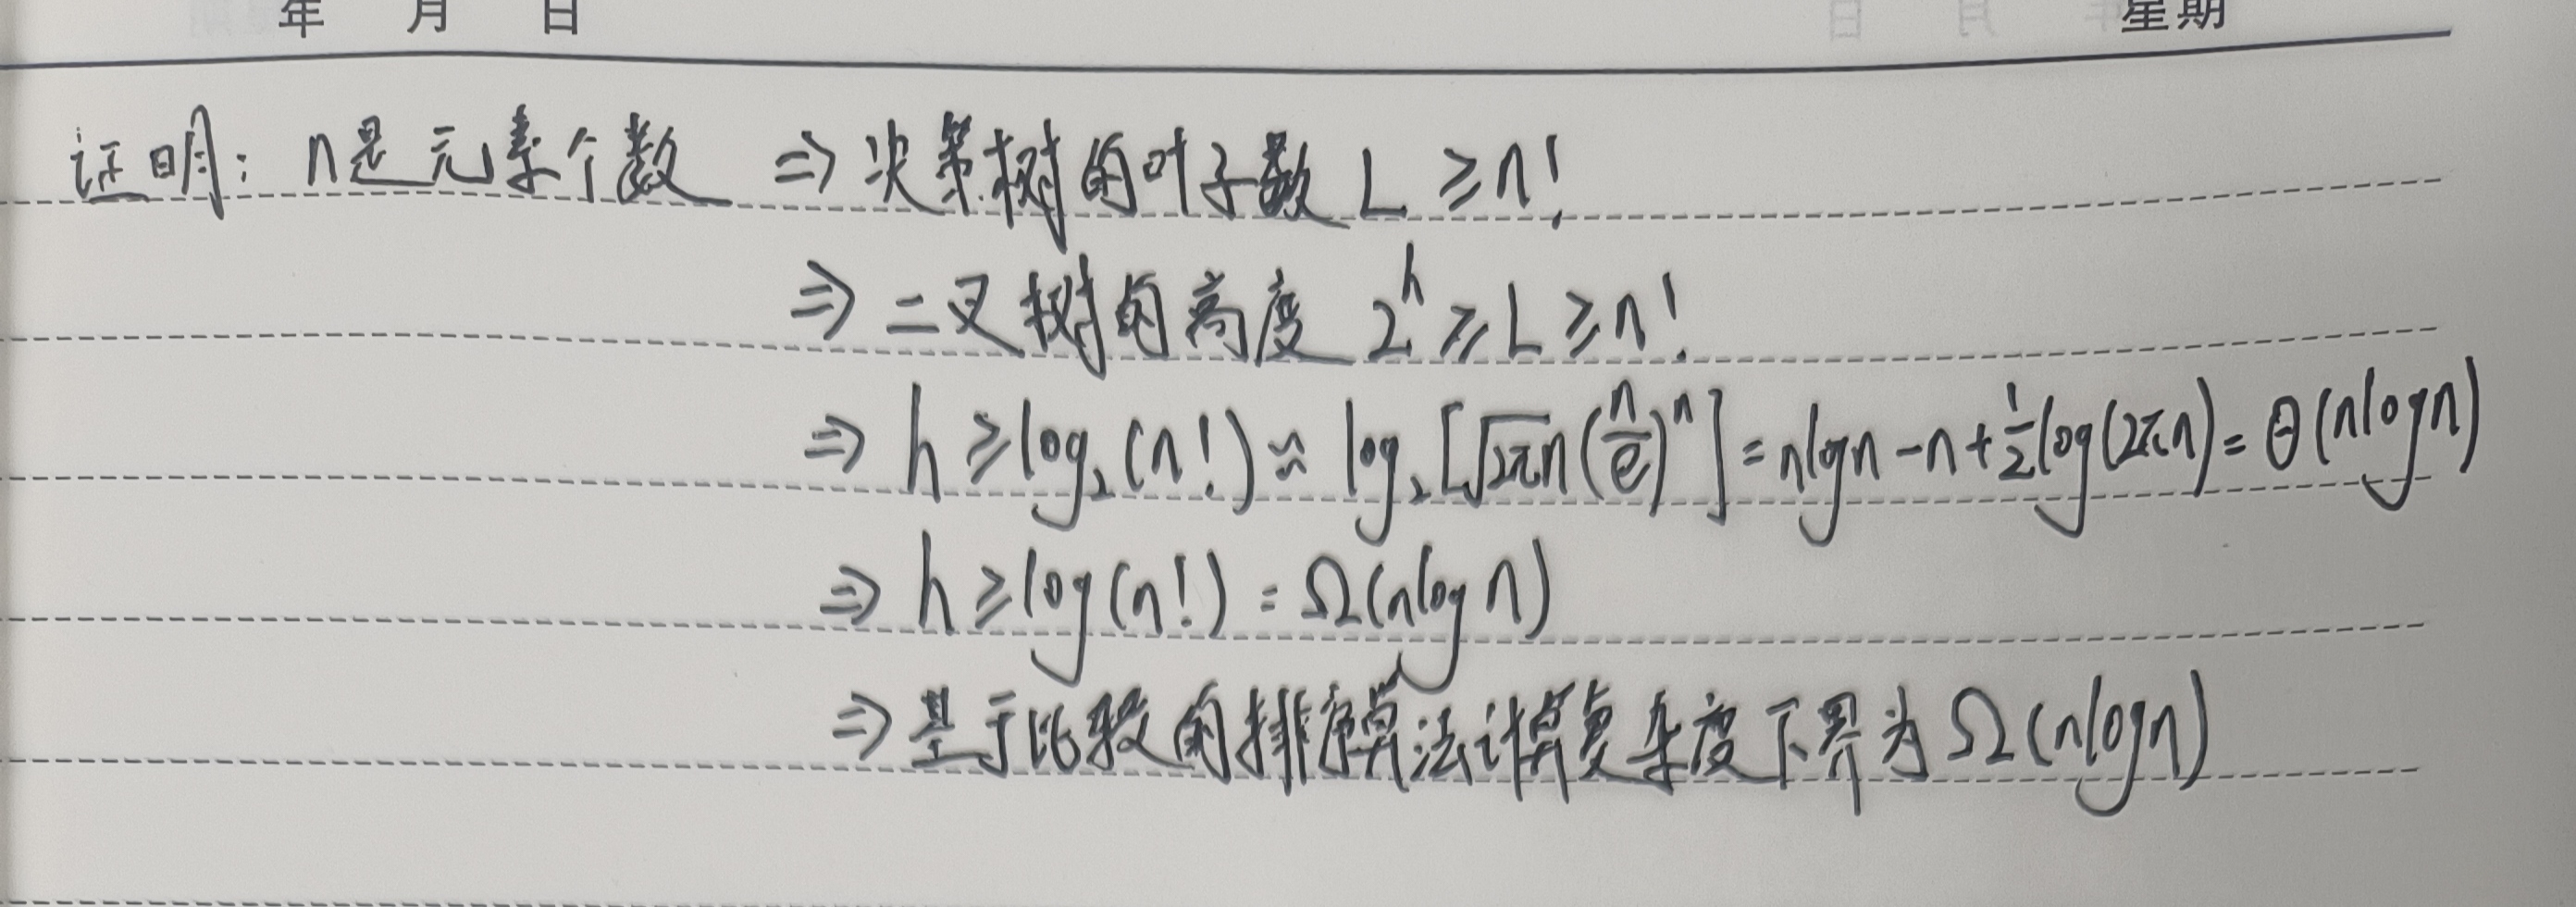 年 月 日 星期
证明: n是元素个数 ⇒ 决策树的叶子数 L ≥ n!
⇒ 二叉树的高度 2^h ≥ L ≥ n!
⇒ h ≥ log₂(n!) ≈ log₂[√2πn (n/e)^n] = nlogn - n + ½log(2πn) = Θ(nlogn)
⇒ h ≥ log(n!) = Ω(nlogn)
⇒ 基于比较的排序算法计算复杂度下界为 Ω(nlogn)